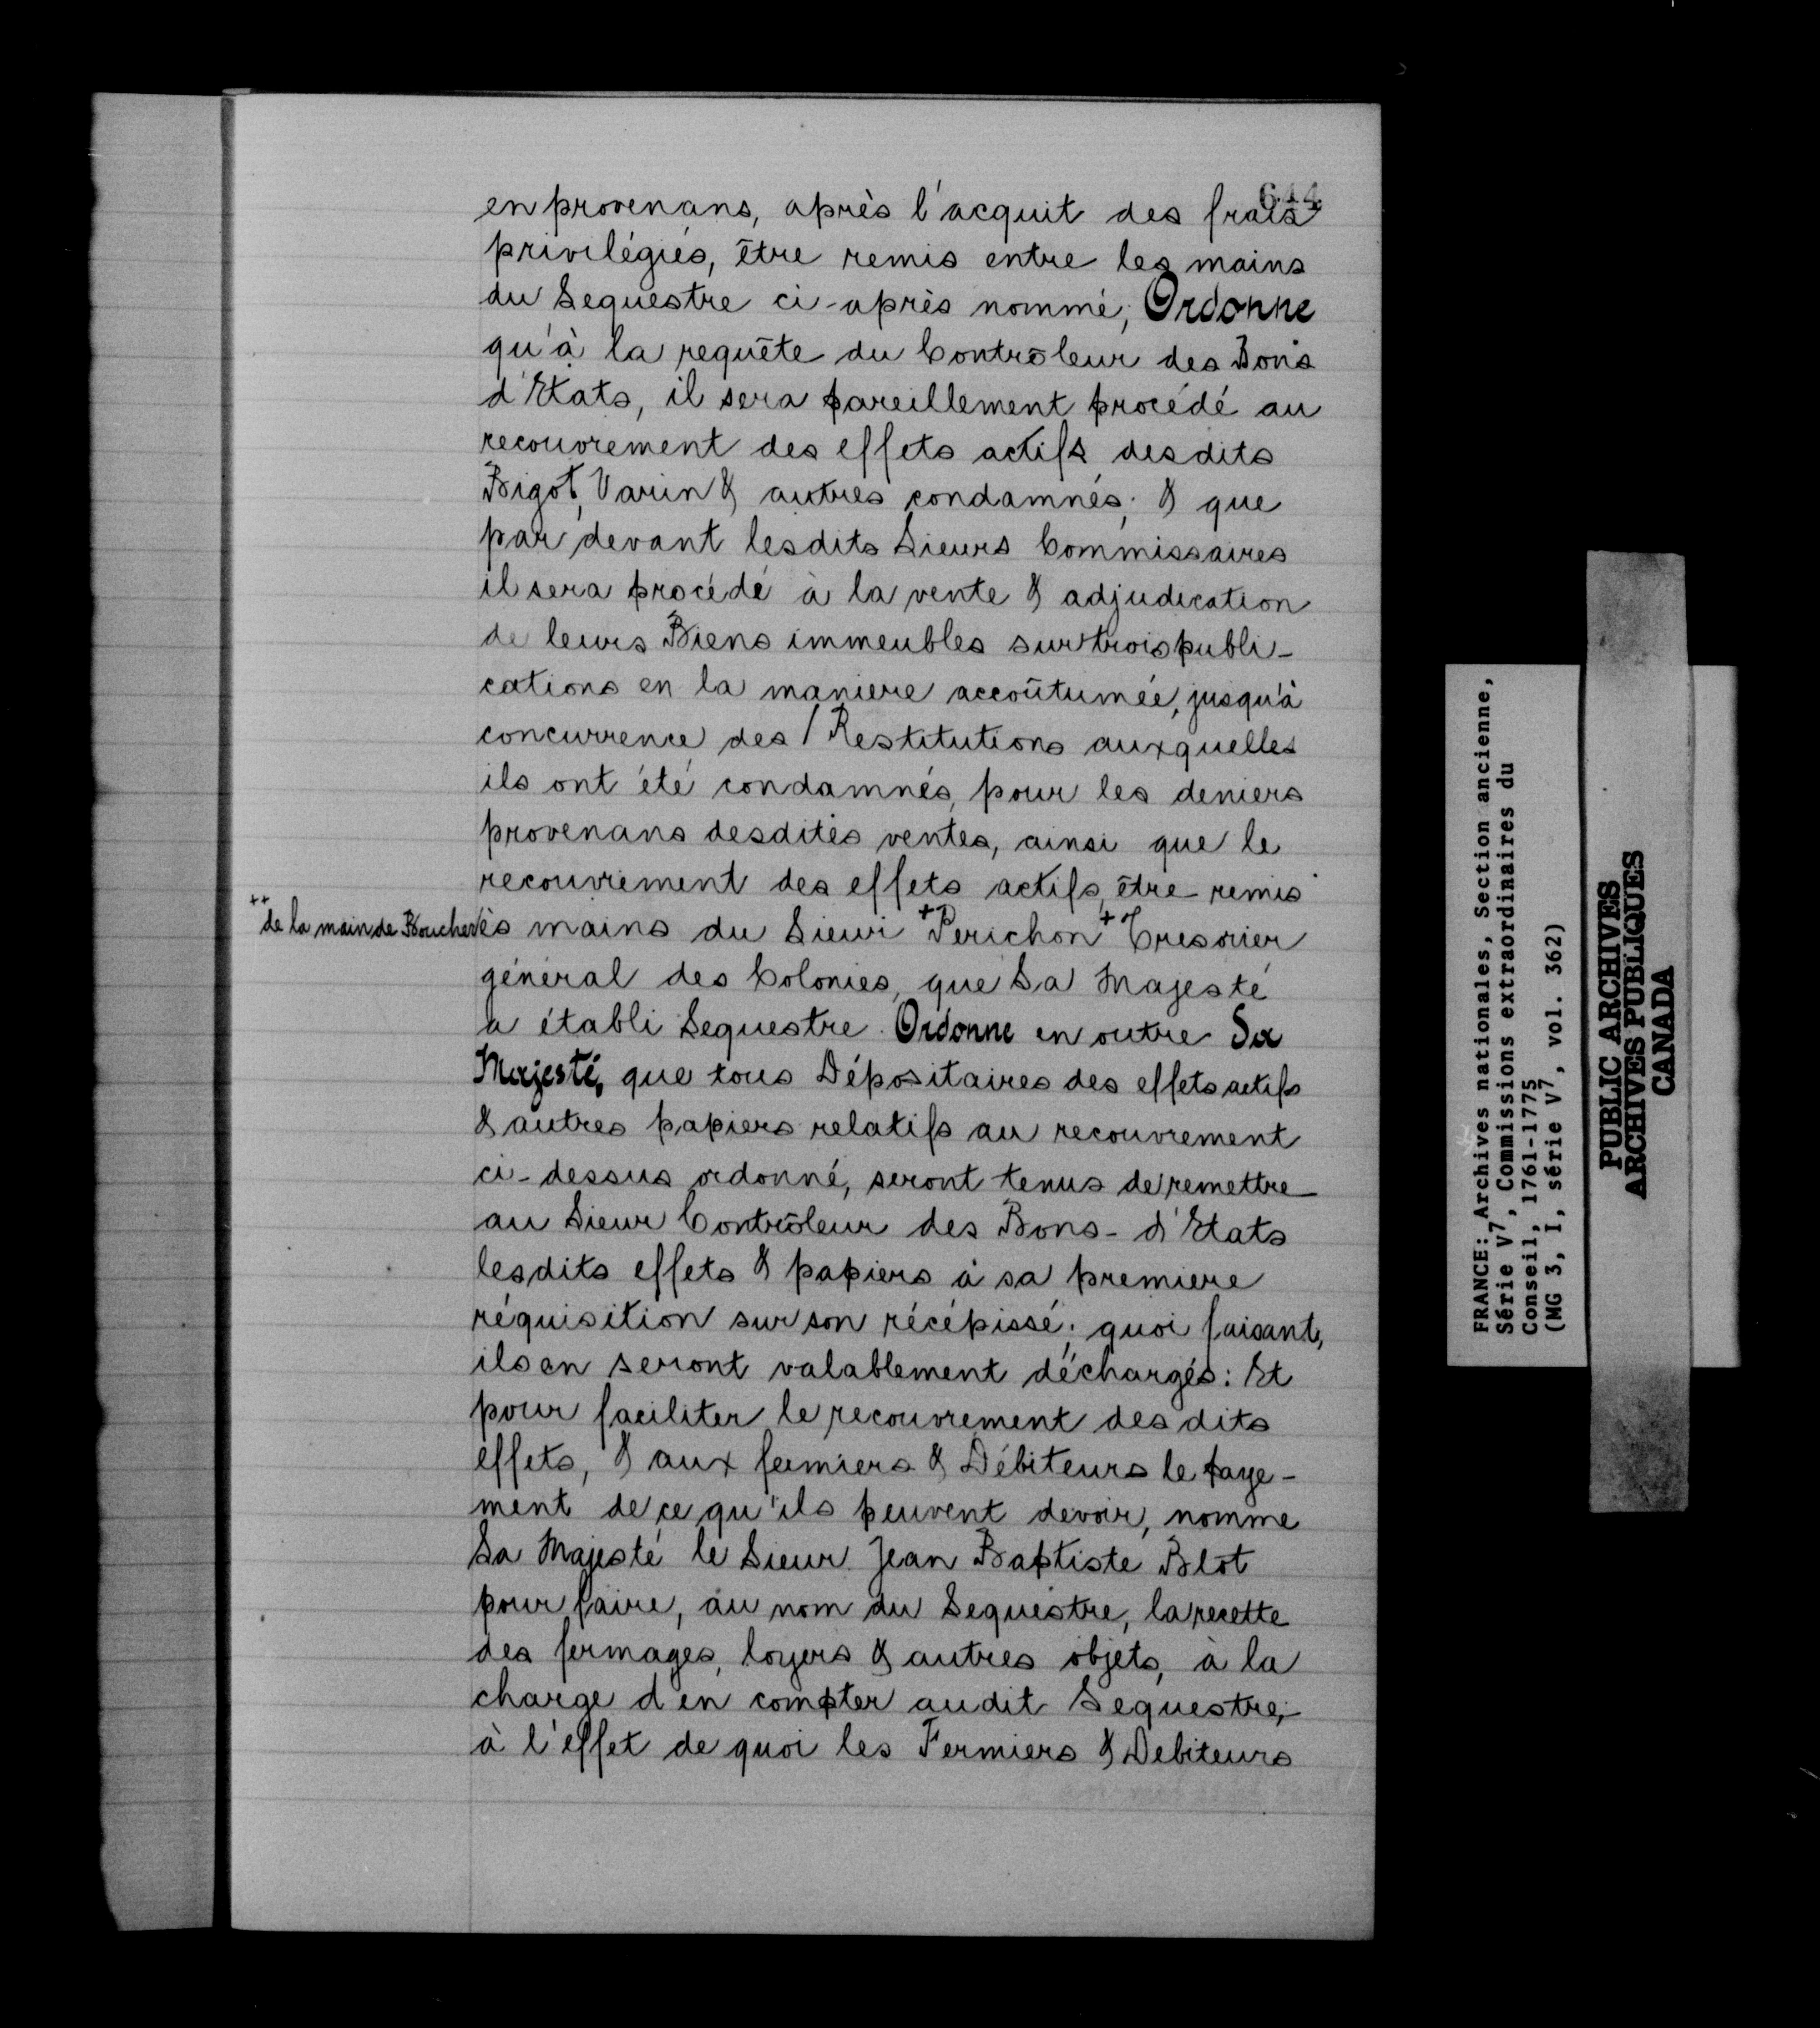 644
en provenans, après l'acquit des frais
privilégiés, être remis entre les mains
du Sequestre ci-après nommé; Ordonne
qu'à la requête du Contrôleur des Bons
d'Etats, il sera pareillement procédé au
recouvrement des effets actifs desdits
Bigot, Varin & autres condamnés; & que
par devant lesdits Sieurs Commissaires
il sera procédé à la vente & adjudication
de leurs Biens immeubles sur trois publi-
cations en la maniere accoûtumée, jusqu'à
concurrence des / Restitutions auxquelles
ils ont été condamnés, pour les deniers
provenans desdites ventes, ainsi que le
recouvrement des effets actifs, être remis
++ de la main de Boucher
ès mains du Sieur + Perichon + Tresorier
général des Colonies, que Sa Majesté
a établi Sequestre. Ordonne en outre Sa
Majesté, que tous Dépositaires des effets actifs
& autres papiers relatifs au recouvrement
ci-dessus ordonné, seront tenus de remettre
au Sieur Contrôleur des Bons-d'Etats
lesdits effets & papiers à sa premiere
réquisition sur son récépissé; quoi faisant,
ils en seront valablement déchargés: Et
pour faciliter le recouvrement desdits
effets, & aux fermiers & Débiteurs le paye-
ment de ce qu'ils peuvent devoir, nomme
Sa Majesté le Sieur Jean Baptiste Blôt
pour faire, au nom du Sequestre, la recette
des fermages, loyers & autres objets, à la
charge d'en compter audit Sequestre;
à l'effet de quoi les Fermiers & Debiteurs
FRANCE: Archives nationales, Section ancienne,
Série V7, Commissions extraordinaires du
Conseil, 1761-1775
(MG 3, I, série V7, vol. 362)
PUBLIC ARCHIVES
ARCHIVES PUBLIQUES
CANADA